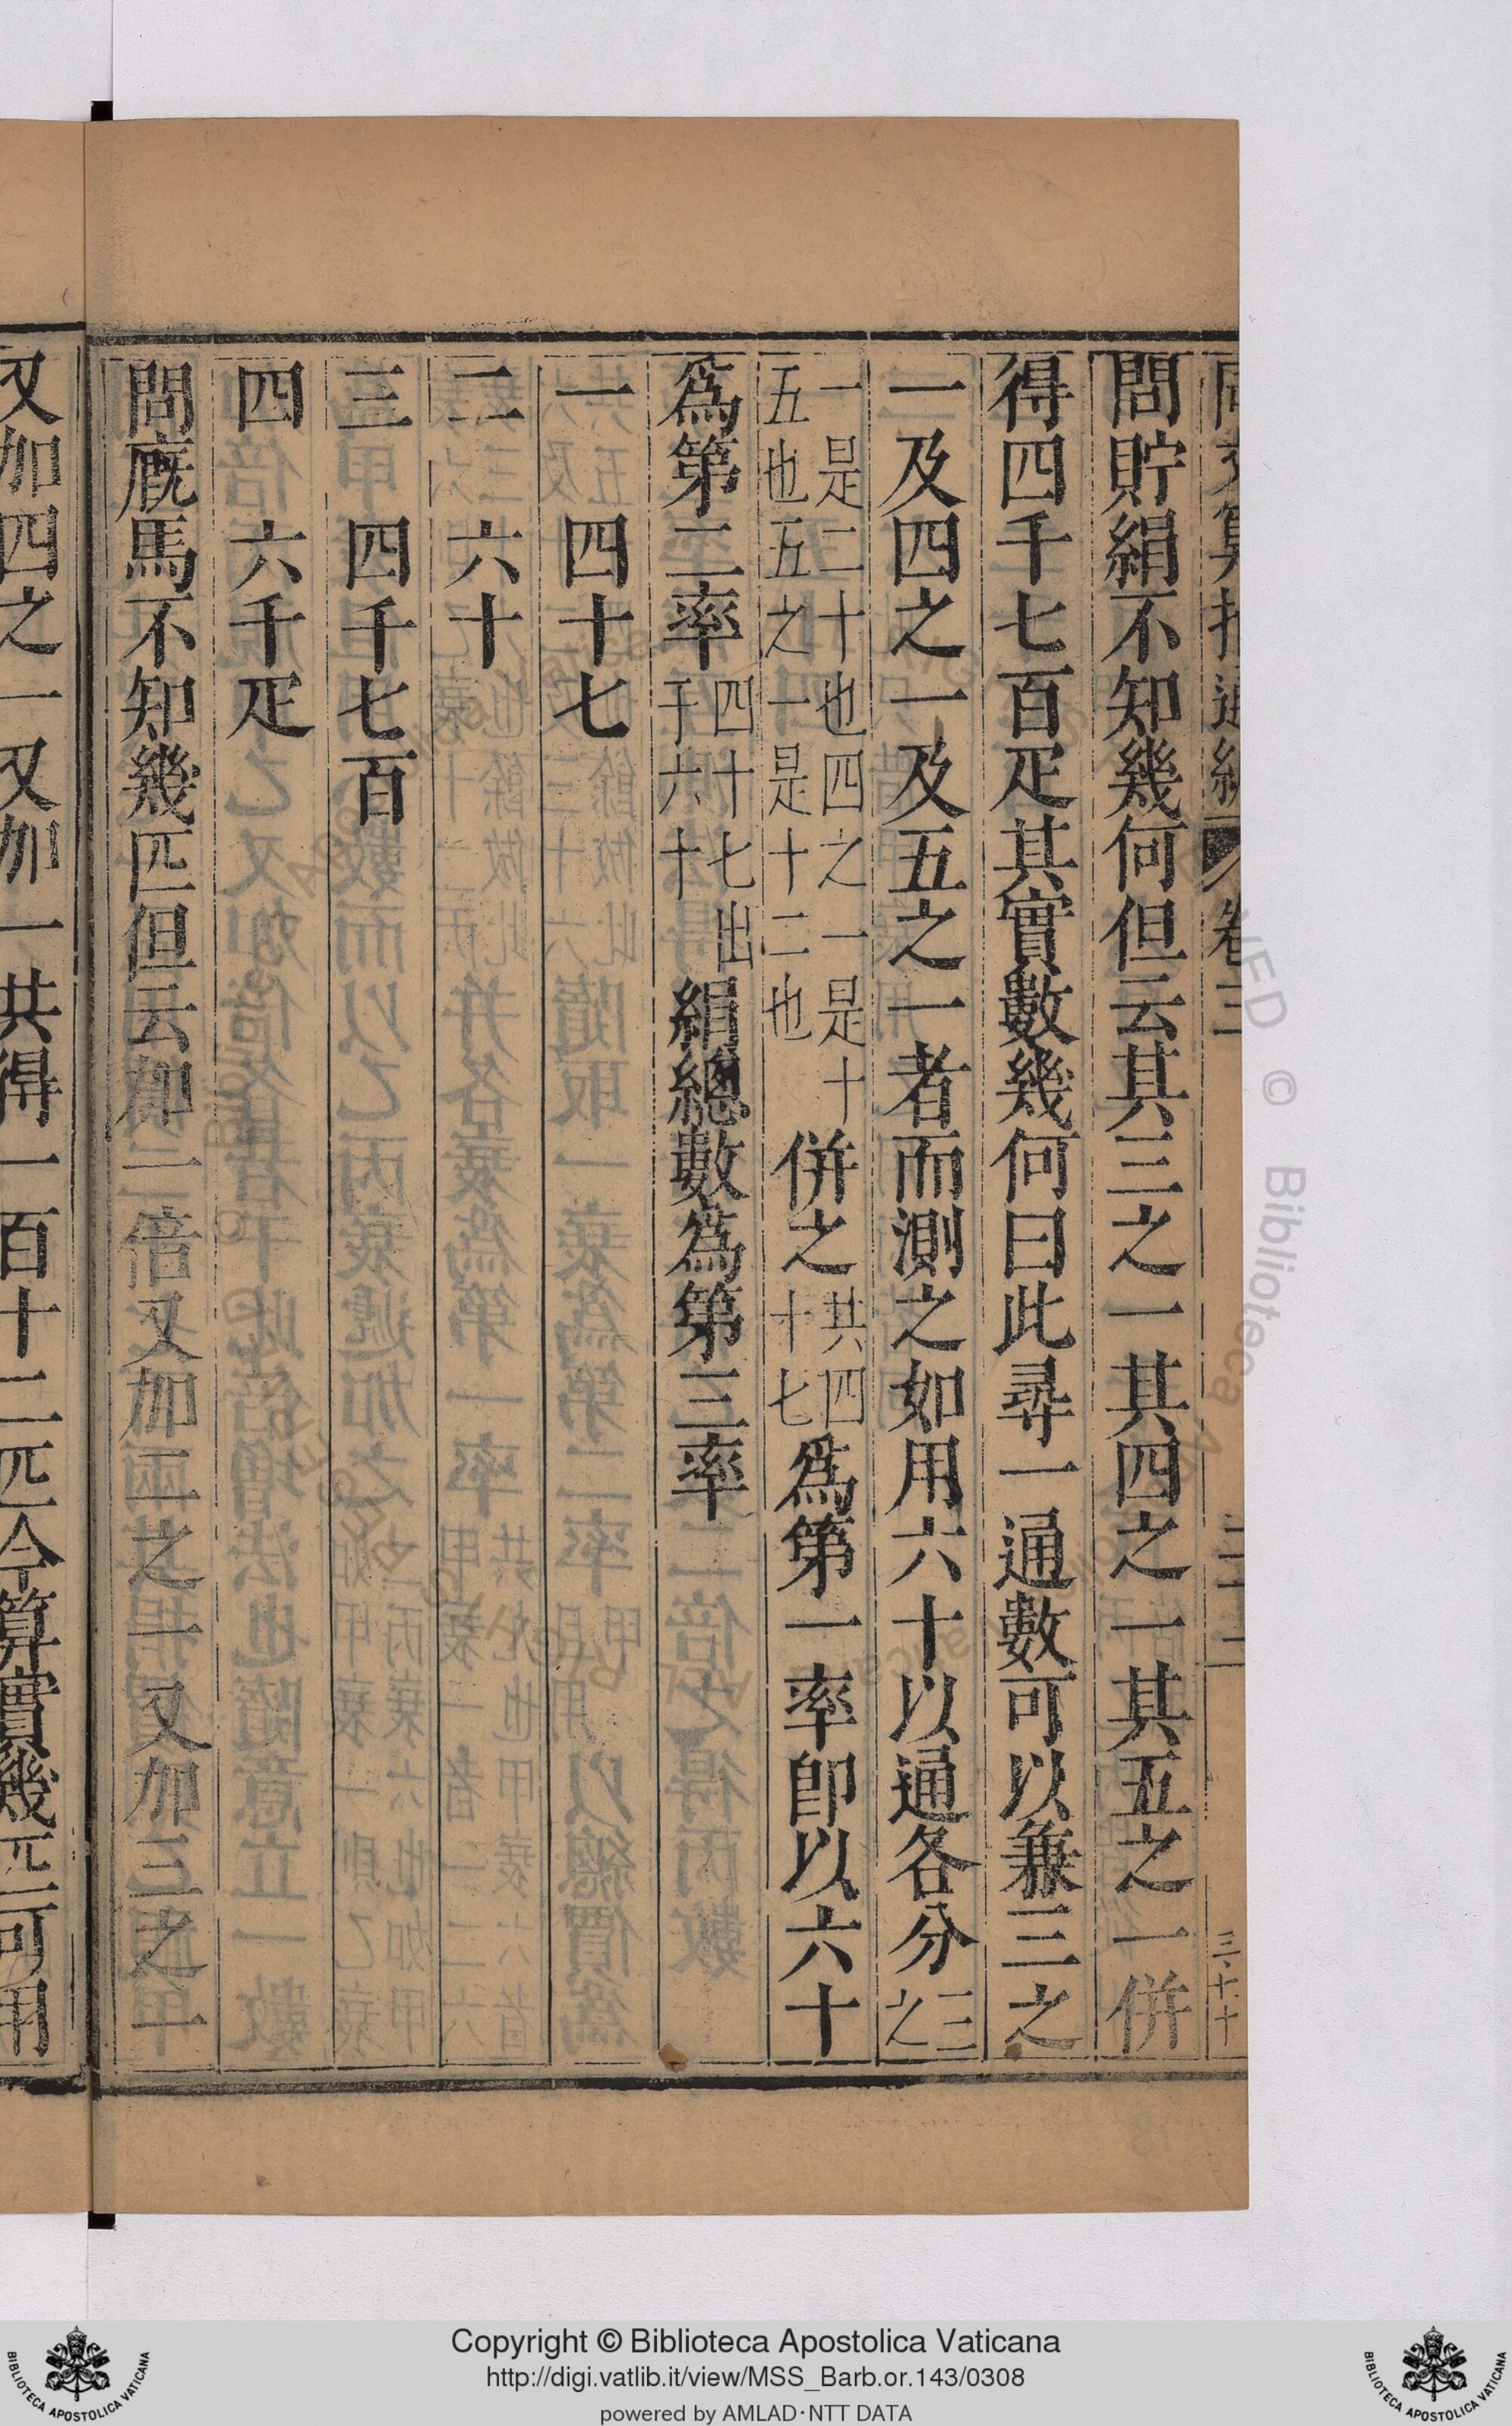 卷三
問貯絹不知幾何但云其三之一其四之一其五之一併
得四千七百疋其實數幾何曰此尋一通數可以兼三之
一及四之一及五之一者而測之如用六十以通各分三之
一是二十也四之一是十
五也五之一是十二也
併之共四十七爲第一率即以六十
爲第二率四十七出于六十絹總數為第三率
一 四十七
二 六十
三 四千七百
四 六千疋
問廐馬不知幾匹但云加二倍又加二之一又加三之
又加四之一又加一共得一百十二匹今算實幾匹可用
Copyright © Biblioteca Apostolica Vaticana
http://digi.vatlib.it/view/MSS_Barb.or.143/0308
powered by AMLAD·NTT DATA
BIBLIOTECA APOSTOLICA VATICANA
BIBLIOTECA APOSTOLICA VATICANA